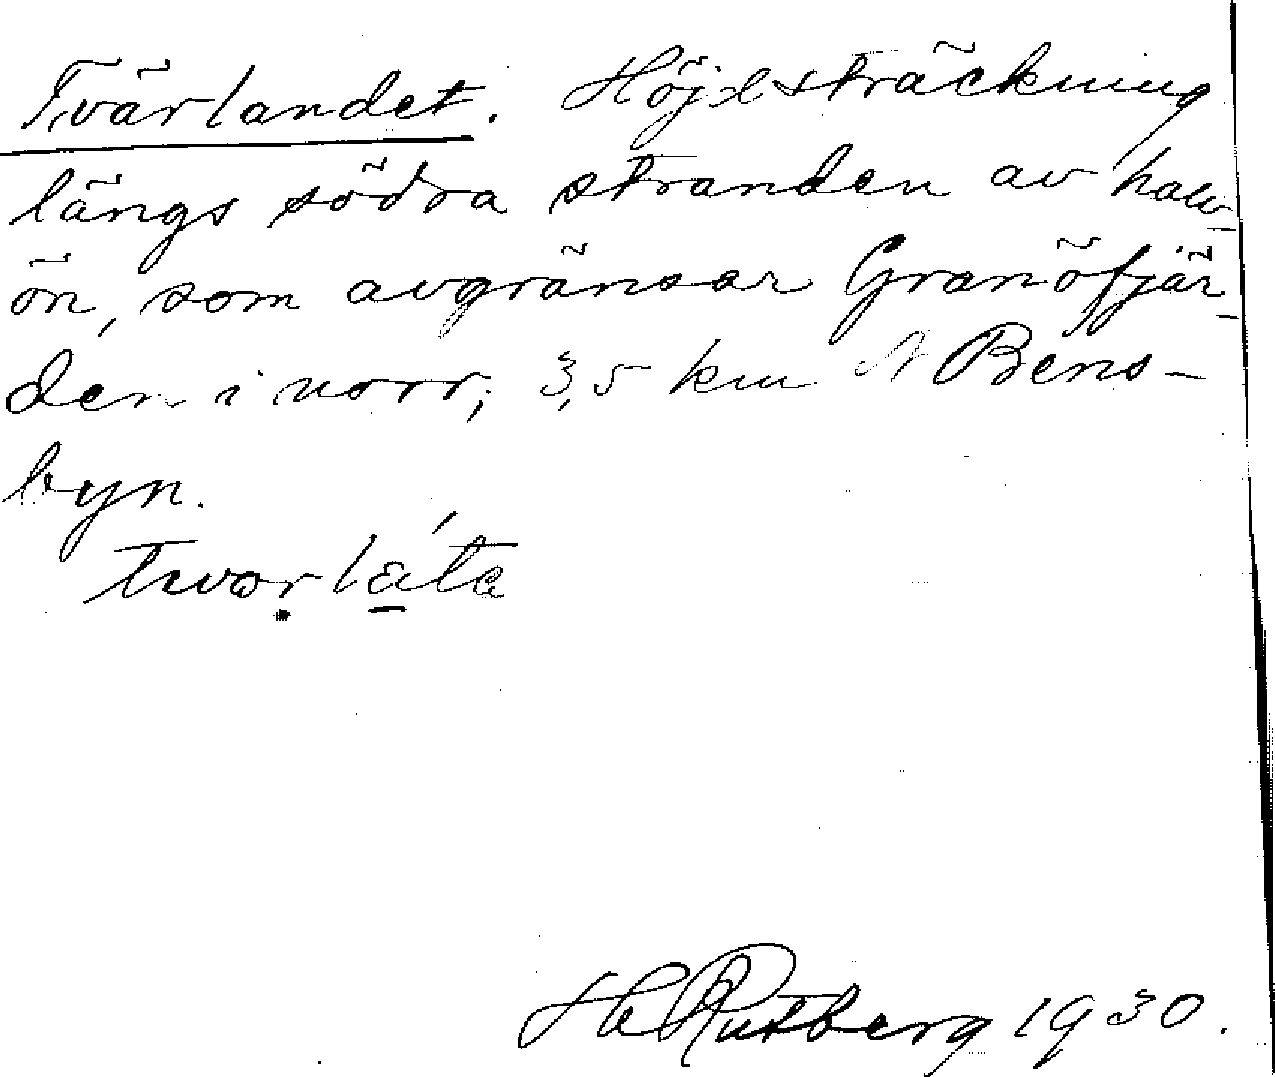 Tvärlandet. Höjdsträckning
längs södra stranden av halv-
ön, som avgränsar Granöfjär-
den i norr; 3,5 km N Bens-
byn.
Rutberg 1930.